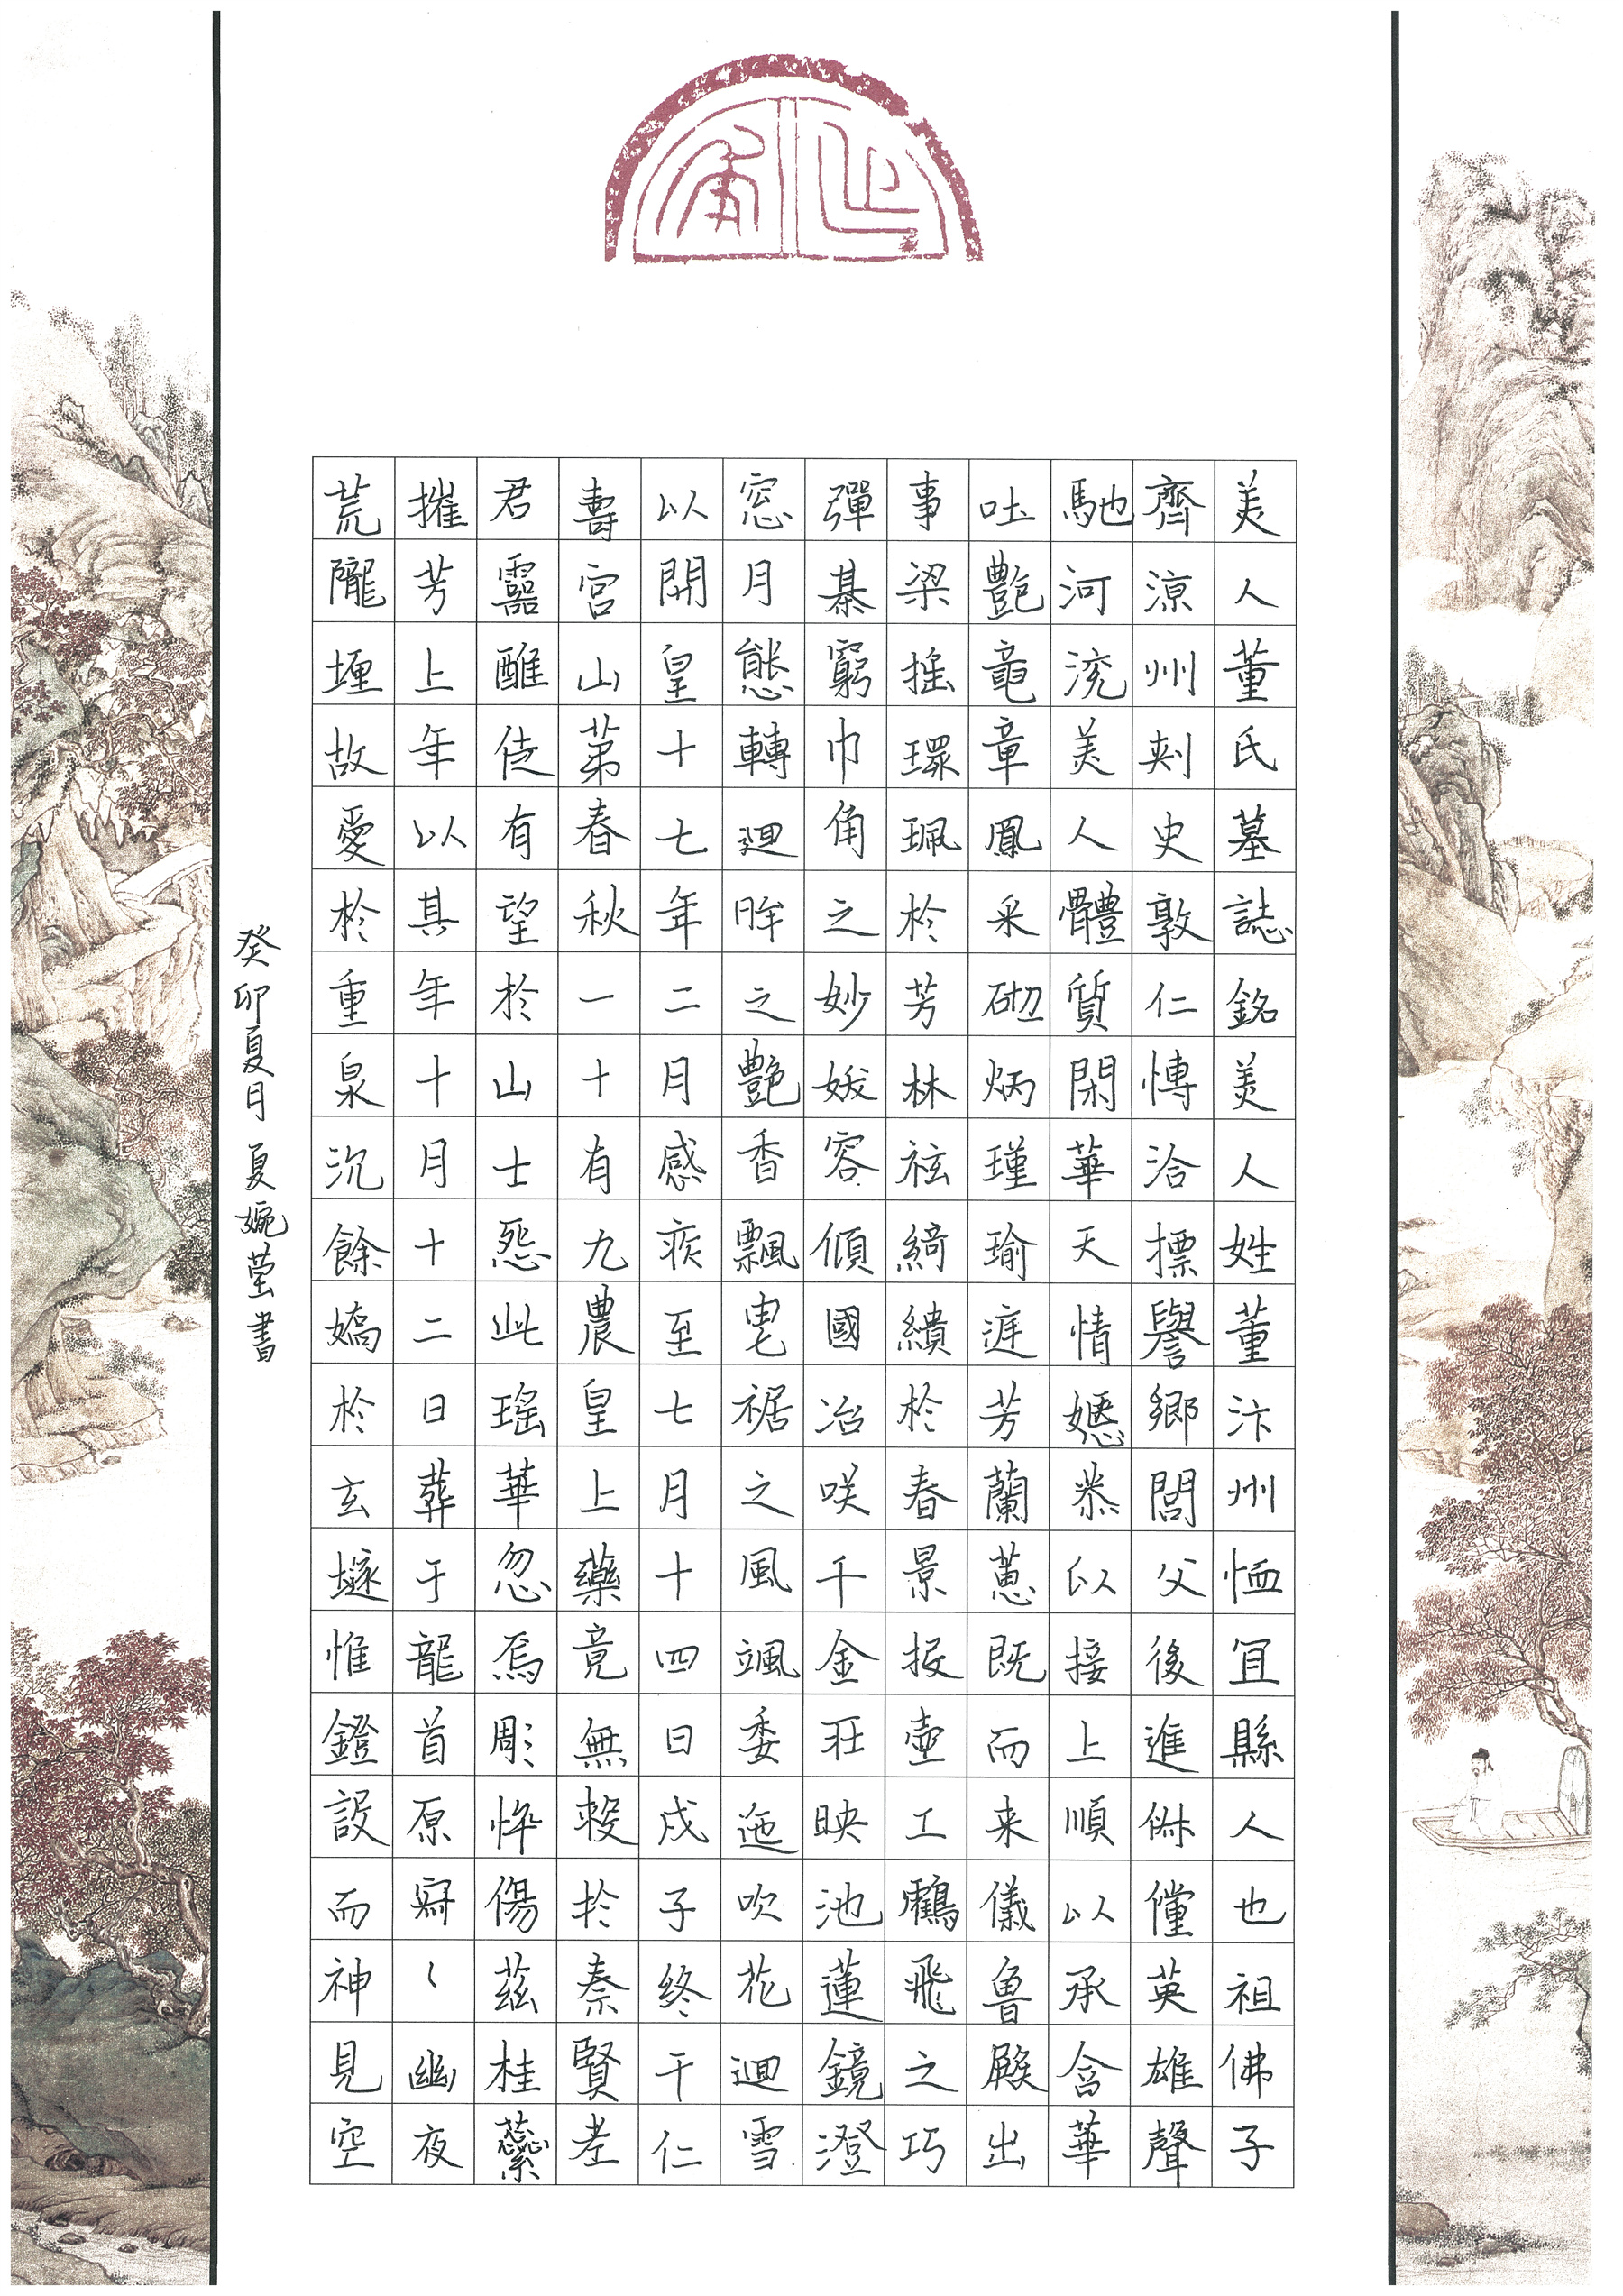 美人董氏墓誌銘美人姓董汴州恤冝縣人也祖佛子
齊涼州刾史敦仁愽洽摽譽鄉閭父後進俶儻英雄聲
馳河浣美人體質閑華天情婉嫕恭以接上順以承含華
吐艷竜章鳳采砌炳瑾瑜庭芳蘭蕙既而来儀魯殿出
事梁摇環珮於芳林袨綺繢於春景投壷工鶴飛之巧
彈棊窮巾角之妙妖容傾國冶咲千金荘映池蓮鏡澄
窓月態轉廻眸之艷香飄曳裾之風颯委迤吹花廻雪
以開皇十七年二月感疾至七月十四日戊子終于仁
壽宮山第春秋一十有九農皇上藥竟無救於秦賢老
君靈醮徒有望於山士怨此瑤華忽焉彫悴傷茲桂蘂
摧芳上年以其年十月十二日葬于龍首原寂〻幽夜
荒隴堙故愛於重泉沉餘嬌於玄墜惟鐙設而神見空
癸卯夏月 夏婉莹書